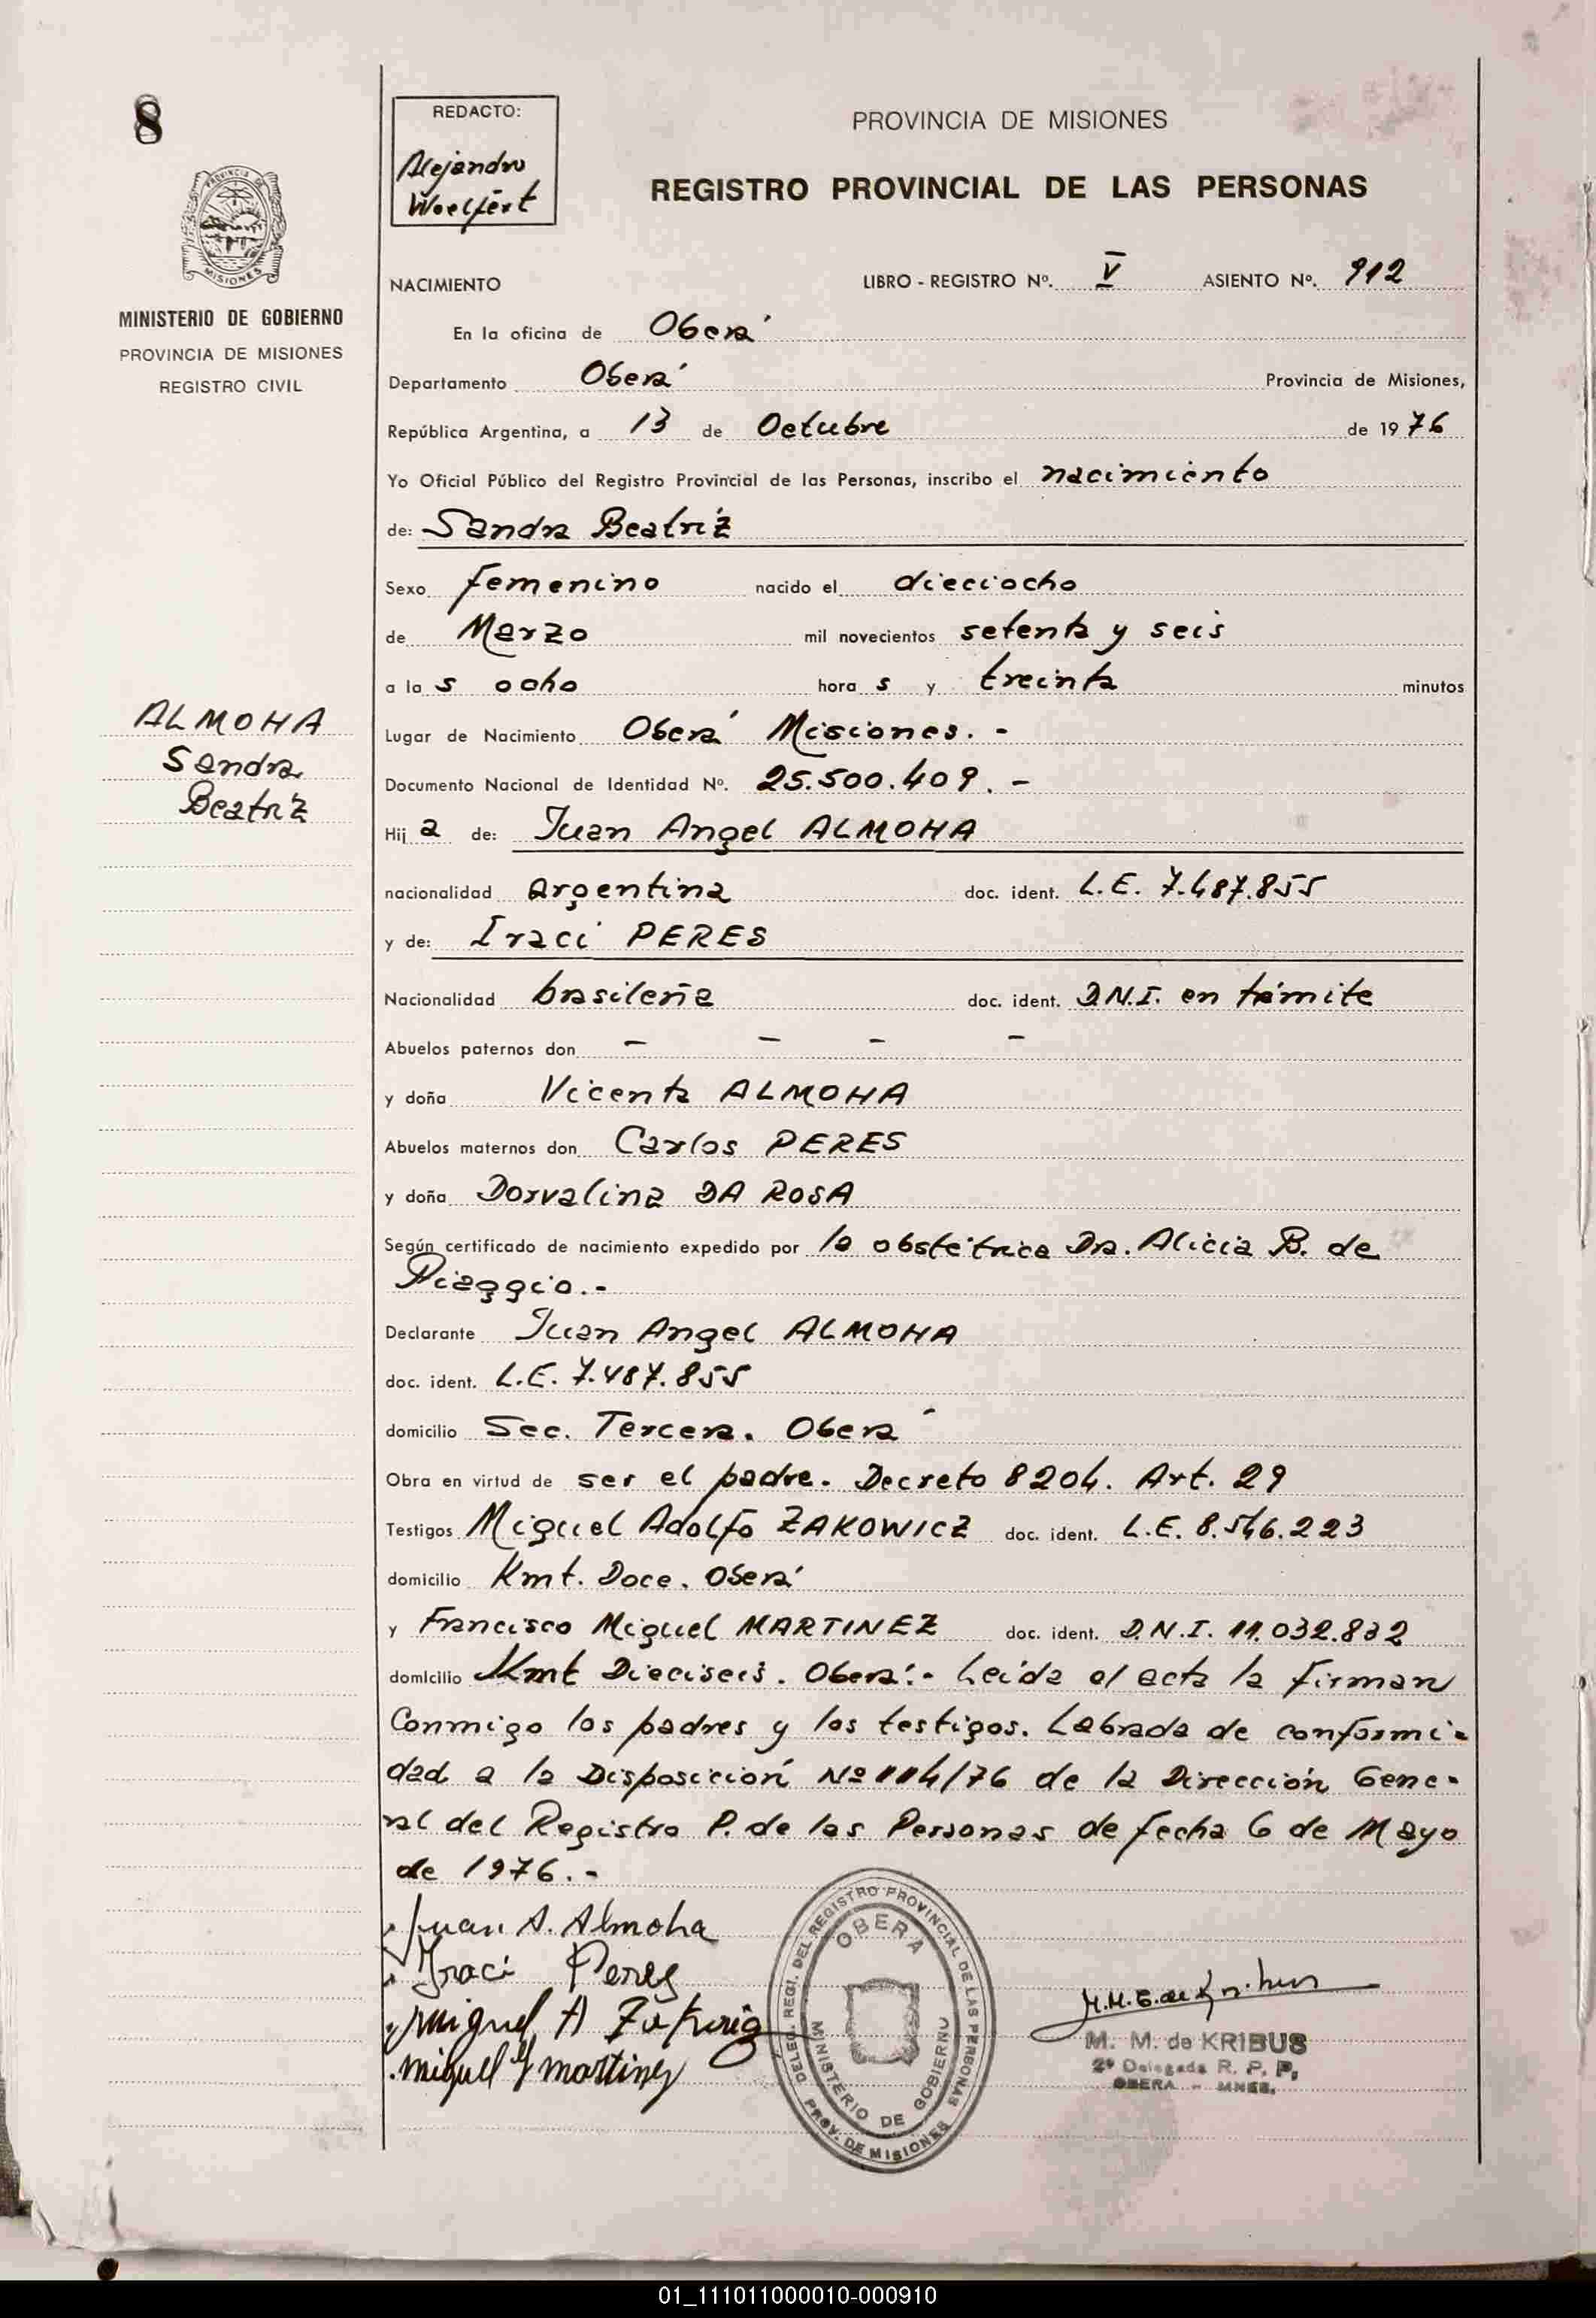 8
REDACTO:
Alejandro
Woelfert
PROVINCIA DE MISIONES
REGISTRO PROVINCIAL DE LAS PERSONAS
MINISTERIO DE GOBIERNO
PROVINCIA DE MISIONES
REGISTRO CIVIL
NACIMIENTO LIBRO - REGISTRO Nº. V ASIENTO Nº. 912
En la oficina de Oberá
Departamento Oberá Provincia de Misiones,
República Argentina, a 13 de Octubre de 1976
Yo Oficial Público del Registro Provincial de las Personas, inscribo el nacimiento
de: Sandra Beatriz
Sexo femenino nacido el dieciocho
de Marzo mil novecientos setenta y seis
a las ocho horas y treinta minutos
Lugar de Nacimiento Oberá Misiones. -
Documento Nacional de Identidad Nº. 25.500.409. -
ALMOHA
Sandra
Beatriz
Hija de: Juan Angel ALMOHA
nacionalidad Argentina doc. ident. L.E. 7.487.855
y de: Iraci PERES
Nacionalidad brasileña doc. ident. D.N.I. en trámite
Abuelos paternos don - - - -
y doña Vicenta ALMOHA
Abuelos maternos don Carlos PERES
y doña Dorvalina DA ROSA
Según certificado de nacimiento expedido por la obstétrica Dra. Alicia B. de
Piaggio.-
Declarante Juan Angel ALMOHA
doc. ident. L.E. 7.487.855
domicilio Sec. Tercera. Oberá
Obra en virtud de ser el padre. Decreto 8204. Art. 29
Testigos Miguel Adolfo ZAKOWICZ doc. ident. L.E. 8.546.223
domicilio Kmt. Doce. Oberá
y Francisco Miguel MARTINEZ doc. ident. D.N.I. 11.032.832
domicilio Kmt Dieciseis. Oberá.- Leída el acta la firman
Conmigo los padres y los testigos. Labrada de conformi-
dad a la Disposición Nº 114/76 de la Dirección Gene-
ral del Registro P. de las Personas de fecha 6 de Mayo
de 1976.-
Juan A. Almoha
Iraci Peres
Miguel A
miguel f martinez
DELEG. REGI. DEL REGISTRO PROVINCIAL DE LAS PERSONAS
OBERA
MINISTERIO DE GOBIERNO
PROV. DE MISIONES
M. M. de KRIBUS
2º Delegada R. P. P.
OBERA - MNES.
01_111011000010-000910